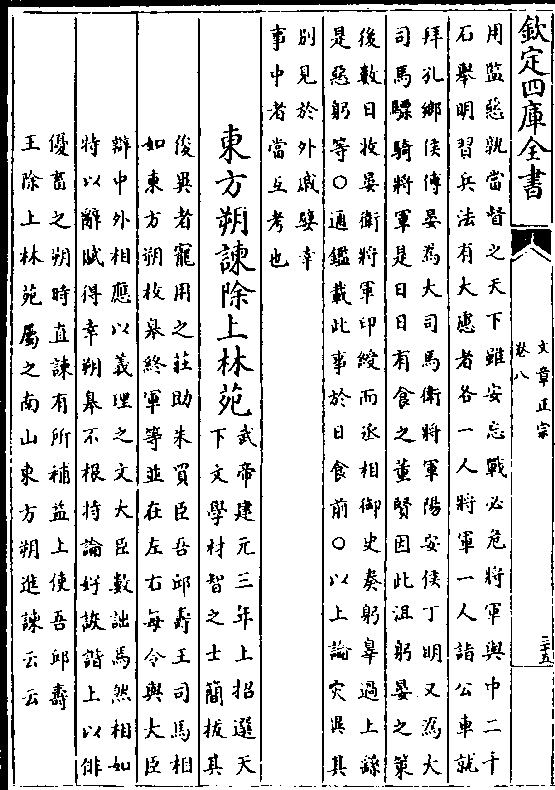 欽定四庫全書
文章正宗
卷八
三十五
用監惩孰當督之天下雖安忘戰必危將軍與中二千
石舉明習兵法有大慮者各一人將軍一人詣公車就
拜孔鄉侯傅晏為大司馬衛將軍陽安侯丁明又為大
司馬驃騎將軍是日日有食之董賢因此沮躬晏之策
後數日收晏衛將軍印綬而丞相御史奏躬辠過上繇
是惡躬等○通鑑載此事於日食前○以上論灾異其
別見於外戚嬖幸
事中者當互考也
東方朔諫除上林苑
武帝建元三年上招選天
下文學材智之士簡拔其
俊異者寵用之莊助朱買臣吾邱壽王司馬相
如東方朔枚皋終軍等並在左右每令與大臣
辯中外相應以義理之文大臣數詘焉然相如
特以辭賦得幸朔皋不根持論好詼諧上以俳
優畜之朔時直諫有所補益上使吾邱壽
王除上林苑屬之南山東方朔進諫云云